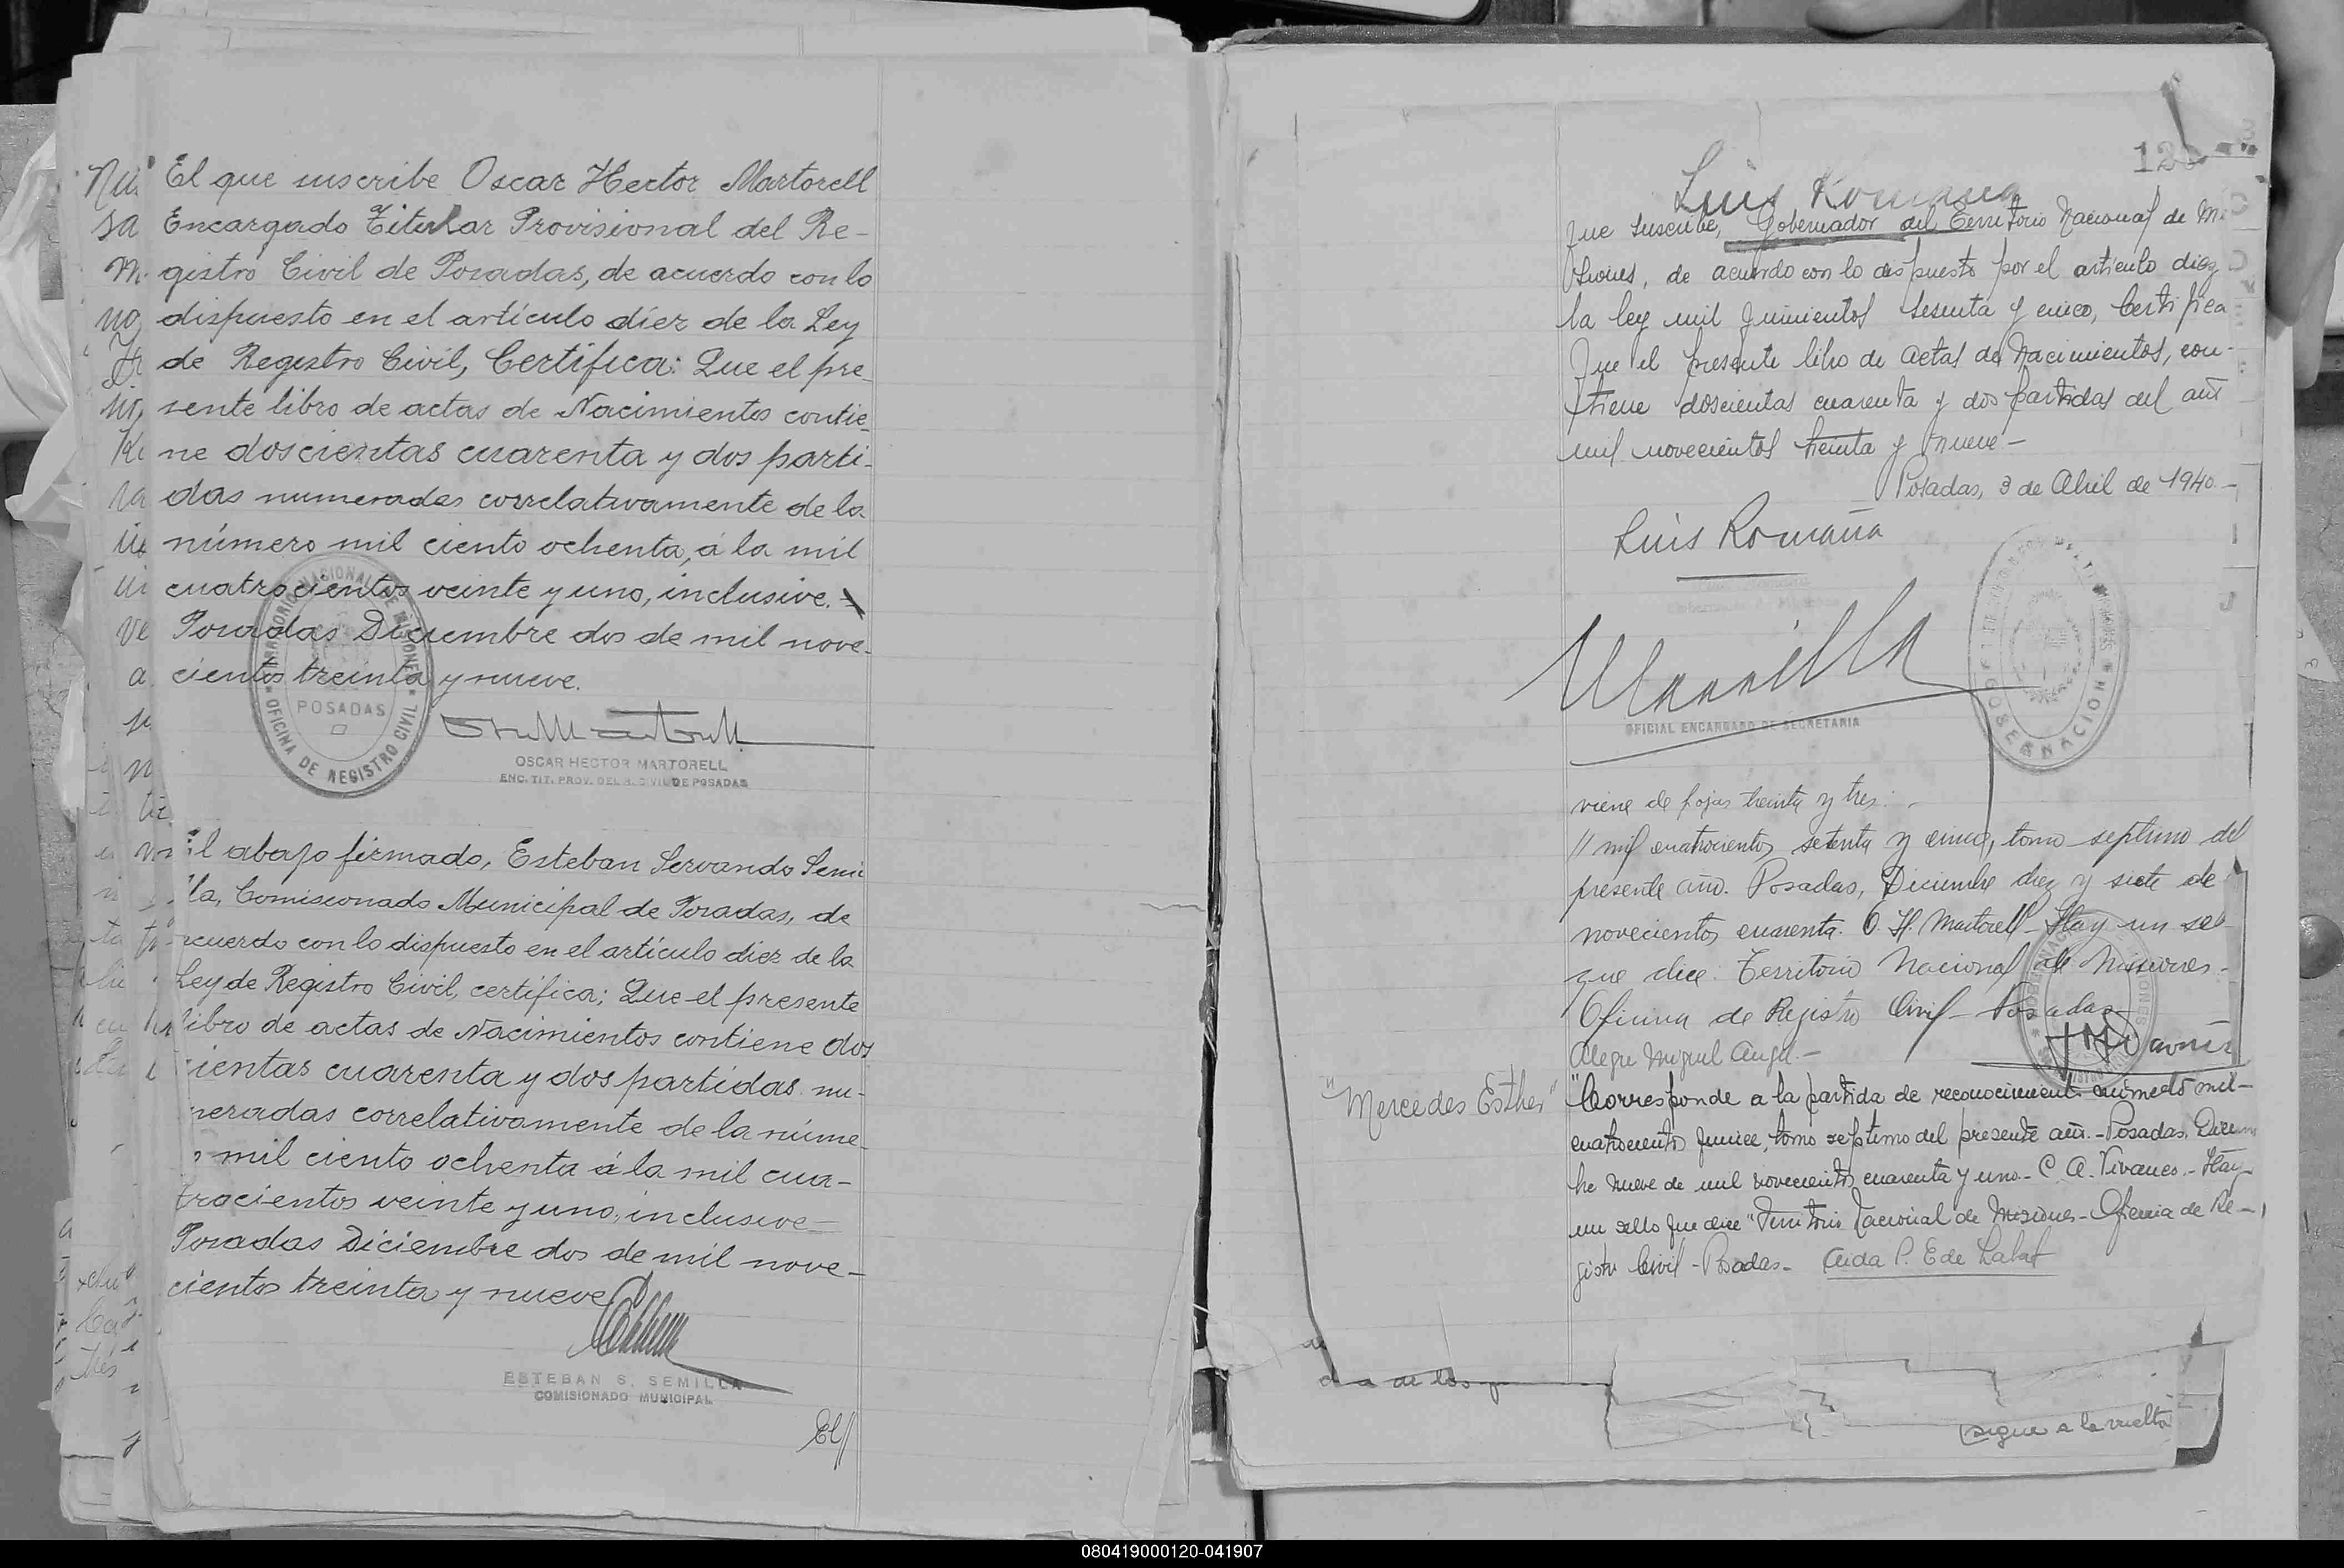 El que suscribe Oscar Hector Martorell
Encargado Titular Provisional del Re-
gistro Civil de Posadas, de acuerdo con lo
dispuesto en el artículo diez de la Ley
de Registro Civil, Certifica: Que el pre-
sente libro de actas de Nacimientos contie-
ne doscientas cuarenta y dos parti-
das numeradas correlativamente de la
número mil ciento ochenta, á la mil
cuatrocientos veinte y uno, inclusive.-
Posadas Diciembre dos de mil nove-
cientos treinta y nueve.
TERRITORIO NACIONAL DE MISIONES
POSADAS
OFICINA DE REGISTRO CIVIL
OSCAR HECTOR MARTORELL
ENC. TIT. PROV. DEL R. CIVIL DE POSADAS
El abajo firmado, Esteban Servando Semi
lla, Comisionado Municipal de Posadas, de
acuerdo con lo dispuesto en el artículo diez de la
Ley de Registro Civil, certifica; Que el presente
libro de actas de Nacimientos contiene dos
cientas cuarenta y dos partidas nu-
meradas correlativamente de la núme-
mil ciento ochenta á la mil cua-
trocientos veinte y uno, inclusive-
Posadas Diciembre dos de mil nove-
cientos treinta y nueve
ESTEBAN S. SEMILLA
COMISIONADO MUNICIPAL
El//
Luis Romaña
que suscribe, Gobernador del Territorio Nacional de Mi
siones, de acuerdo con lo dispuesto por el artículo diez
la ley mil quinientos sesenta y cinco, Certifica
Que el presente libro de actas de Nacimientos, con-
tiene doscientas cuarenta y dos partidas del año
mil novecientos treinta y nueve-
Posadas, 3 de Abril de 1940.-
Luis Romaña
OFICIAL ENCARGADO DE SECRETARIA
GOBERNACION
viene de fojas treinta y tres:
// mil cuatrocientos setenta y cinco, tomo septimo del
presente año. Posadas, Diciembre diez y siete de
novecientos cuarenta. O. H. Martorell - Hay un sel
que dice: Territorio Nacional de Misiones.-
Oficina de Registro Civil - Posadas-
Alegre Miguel Angel.-
"Mercedes Esther"
"Corresponde a la partida de reconocimiento número mil-
cuatrocientos quince, tomo septimo del presente año.- Posadas, Diciem
bre nueve de mil novecientos cuarenta y uno.- C. A. Vivanco.- Hay
un sello que dice "Territorio Nacional de Misiones - Oficina de Re-
gistro Civil - Posadas- Aida P. E de Labat
sigue a la vuelta
080419000120-041907